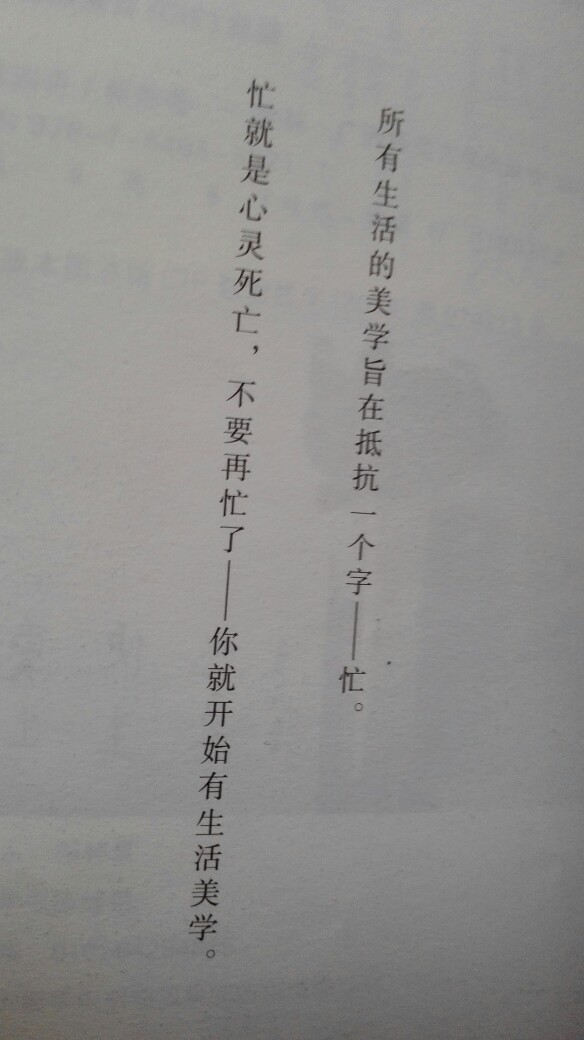 所有生活的美学旨在抵抗一个字——忙。
忙就是心灵死亡，不要再忙了——你就开始有生活美学。